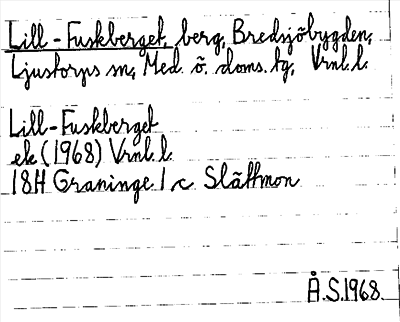 Lill-Fuskberget, berg, Bredsjöbygden,
Ljustorps sn, Med. ö. doms. tg, Vrnl. l.
Lill-Fuskberget
ek (1968) Vrnl. l.
18H Graninge 1 c Slättmon
Å.S.1968.